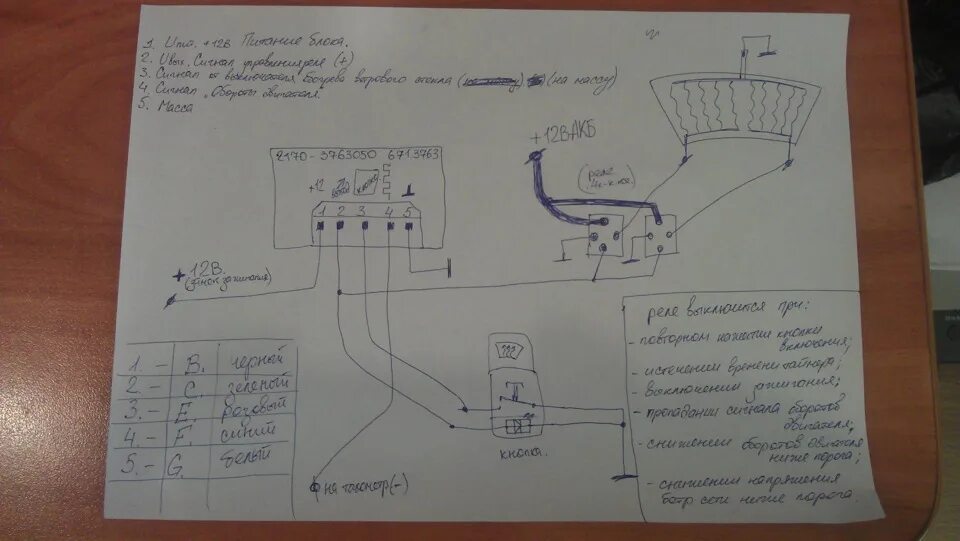 1. Uпит. +12В Питание блока.
2. Uвых. Сигнал управления реле (+)
3. Сигнал от выключателя обогрева ветрового стекла (на массу)
4. Сигнал. Обороты двигателя.
5. Масса
+12В АКБ
2170-3763050 671.3763
+12
кнопка
1 2 3 4 5
(реле 4х-к.ное)
+12В.
(замок зажигания)
1. - B. чёрный
2. - C. зелёный
3. - E. розовый
4. - F. синий
5. - G. белый
на тахометр (-)
кнопка.
реле выключится при:
- повторном нажатии кнопки
включения;
- истечении времени таймера;
- выключении зажигания;
- пропадании сигнала оборотов
двигателя;
- снижении оборотов двигателя
ниже порога;
- снижении напряжения
борт. сети ниже порога.